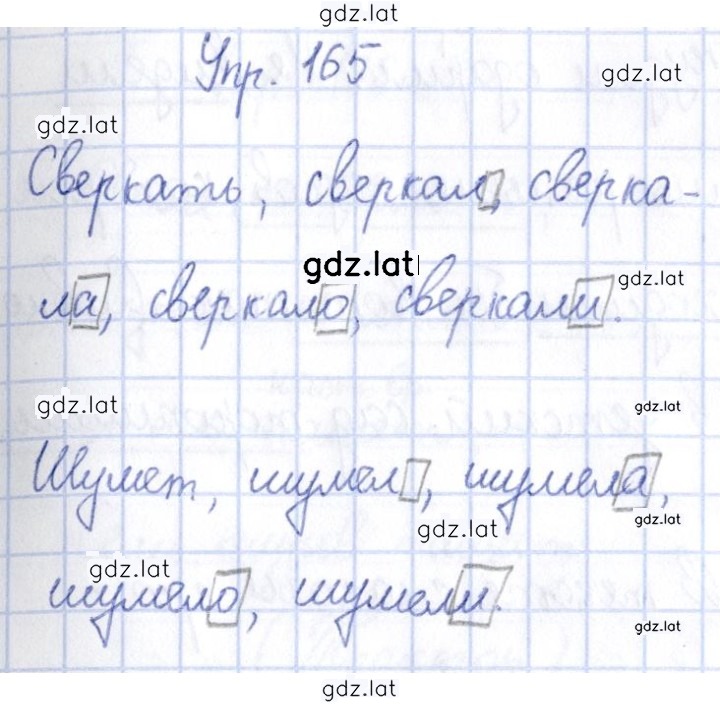 gdz.lat
Упр. 165
gdz.lat
gdz.lat
Сверкать, сверкал, сверка-
gdz.lat
gdz.lat
ла, сверкало, сверкали.
gdz.lat
gdz.lat
Шумет, шумел, шумела,
gdz.lat
gdz.lat
gdz.lat
шумело, шумели.
gdz.lat
gdz.lat